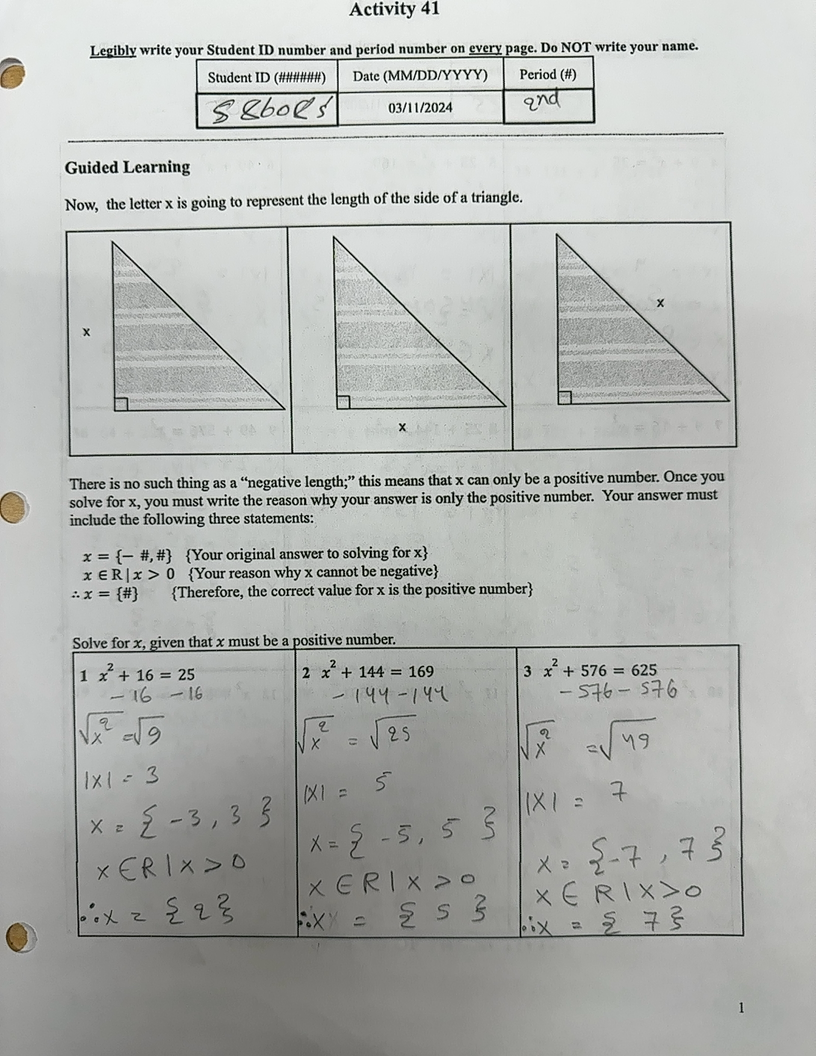 Activity 41
Legibly write your Student ID number and period number on every page. Do NOT write your name.
Student ID (######) Date (MM/DD/YYYY) Period (#)
03/11/2024 2nd
Guided Learning
Now, the letter x is going to represent the length of the side of a triangle.
x
x
x
There is no such thing as a “negative length;” this means that x can only be a positive number. Once you
solve for x, you must write the reason why your answer is only the positive number. Your answer must
include the following three statements:
x = {− #, #} {Your original answer to solving for x}
x ∈ R | x > 0 {Your reason why x cannot be negative}
∴ x = {#} {Therefore, the correct value for x is the positive number}
Solve for x, given that x must be a positive number.
1 x² + 16 = 25
-16 -16
√x² = √9
|x| = 3
x = {-3, 3}
x ∈ R | x > 0
∴ x = {2}
2 x² + 144 = 169
-144 -144
√x² = √25
|x| = 5
x = {-5, 5}
x ∈ R | x > 0
∴ x = {5}
3 x² + 576 = 625
-576 - 576
√x² = √49
|x| = 7
x = {-7, 7}
x ∈ R | x > 0
∴ x = {7}
1